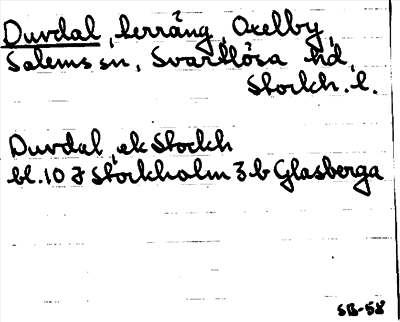 Duvdal, terräng, Oxelby,
Salems sn, Svartlösa hd,
Stockh. l.
Duvdal, ek Stockh
bl. 10 J Stockholm 3-b Glasberga
SB-58